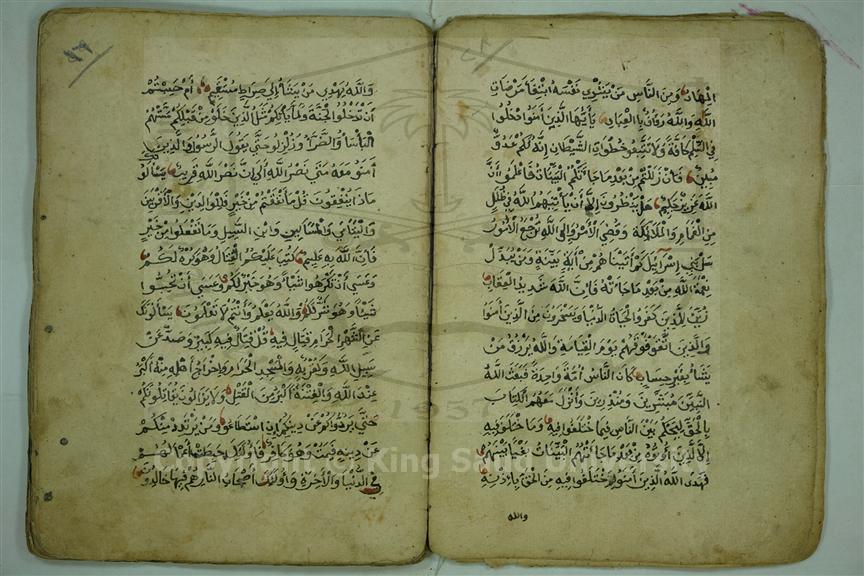 المهاد ومن الناس من يشري نفسه ابتغا مرضات
الله والله رؤف بالعباد يأيها الذين امنوا ادخلوا
في السلم كافة ولا تتبعوا خطوات الشيطان إنه لكم عدو
مبين فان زللتم من بعد ما جاءتكم البينات فاعلموا أن
الله عزيز حكيم هل ينظرون إلا أن يأتيهم الله في ظلل
من الغمام والملائكة وقضي الأمر وإلى الله ترجع الأمور
سل بني إسرائيل كم أتيناهم من أية بينة ومن يبدل
نعمة الله من بعد ما جاءته فإن الله شديد العقاب
زين للذين كفروا الحياة الدنيا ويسخرون من الذين أمنوا
والذين اتقوا فوقهم يوم القيامة والله يرزق من
يشاء بغير حساب كان الناس أمة واحدة فبعث الله
النبين مبشرين ومنذرين وأنزل معهم الكتاب
بالحق ليحكم بين الناس فيما اختلفوا فيه وما اختلف فيه
إلا الذين أوتوه من بعد ما جاءتهم البينات بغيا بينهم
فهدى الله الذين امنوا لما اختلفوا فيه من الحق بإذنه
والله
والله يهدي من يشاء إلى صراط مستقيم أم حسبتم
أن تدخلوا الجنة ولما يأتكم مثل الذين خلو من قبلكم مستهم
البأسا والضراء وزلزلوا حتى يقول الرسول والذين
أمنو معه متى نصر الله ألا إن نصر الله قريب يسألونك
ماذا ينفقون قل ما أنفقتم من خير فللوالدين والأقربين
واليتامى والمساكين وابن السبيل وما تفعلوا من خير
فإن الله به عليم كتب عليكم القتال وهو كره لكم
وعسى أن تكرهوا شيأ وهو خير لكم وعسى أن تحبوا
شيئا وهو شر لكم والله يعلم وأنتم لا تعلمون يسألونك
عن الشهر الحرام قتال فيه قل قتال فيه كبير وصد عن
سبيل الله وكفر به والمسجد الحرام وإخراج أهله منه أكبر
عند الله والفتنة أكبر من القتل ولا يزالون يقاتلونكم
حتى يردوكم عن دينكم إن استطاعوا ومن يرتدد منكم
عن دينه فيمت وهو كافر فأولئك حبطت أعمالهم
في الدنيا والأخرة وأولئك أصحاب النار هم فيها خالدون
Copyright © King Saud University
1957